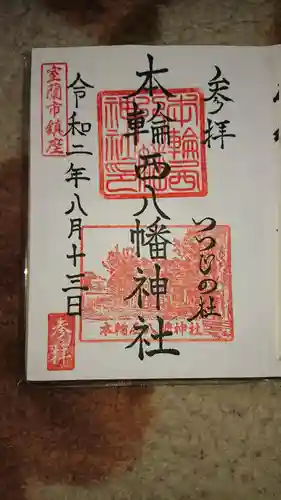 参拝
つつじの社
本輪西八幡神社
令和二年八月十三日
室蘭市鎮座
本輪西八幡神社
参拝